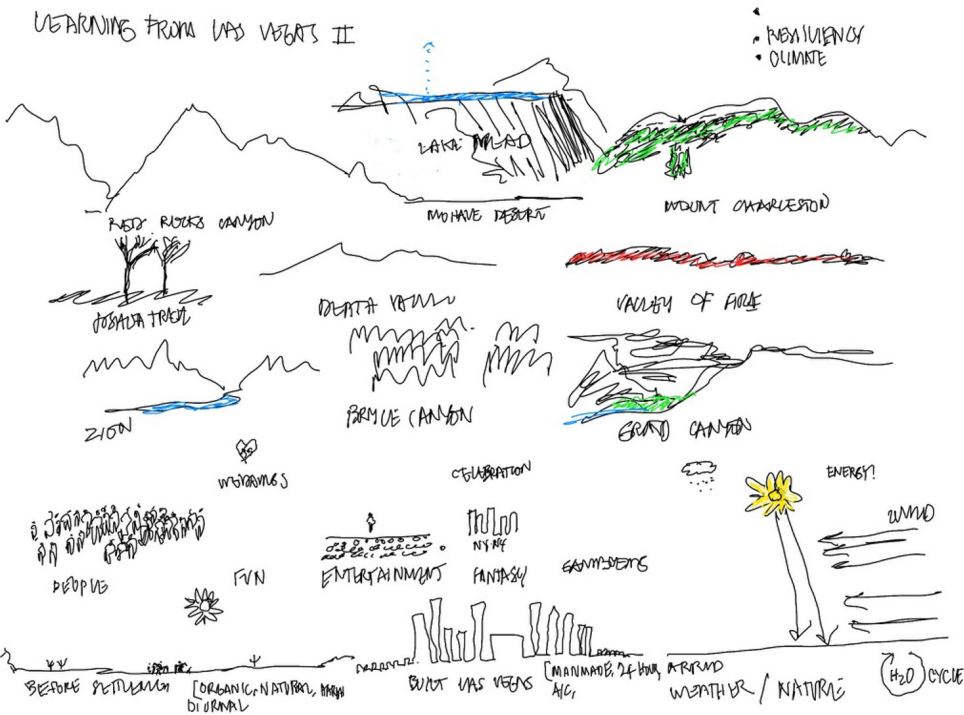 LEARNING FROM LAS VEGAS II
• RESILIENCY
• CLIMATE
LAKE MEAD
RED ROCKS CANYON
MOHAVE DESERT
MOUNT CHARLESTON
JOSHUA TREE
DEATH
VALLEY OF FIRE
ZION
BRYCE CANYON
GRAND CANYON
WEDDINGS
CELEBRATION
ENERGY!
WIND
NY·NY
PEOPLE
FUN
ENTERTAINMENT
FANTASY
BEFORE
[ORGANIC, NATURAL,
DIURNAL
BUILT LAS VEGAS
[MANMADE, 24 HOUR,
A/C,
WEATHER / NATURE
H2O CYCLE